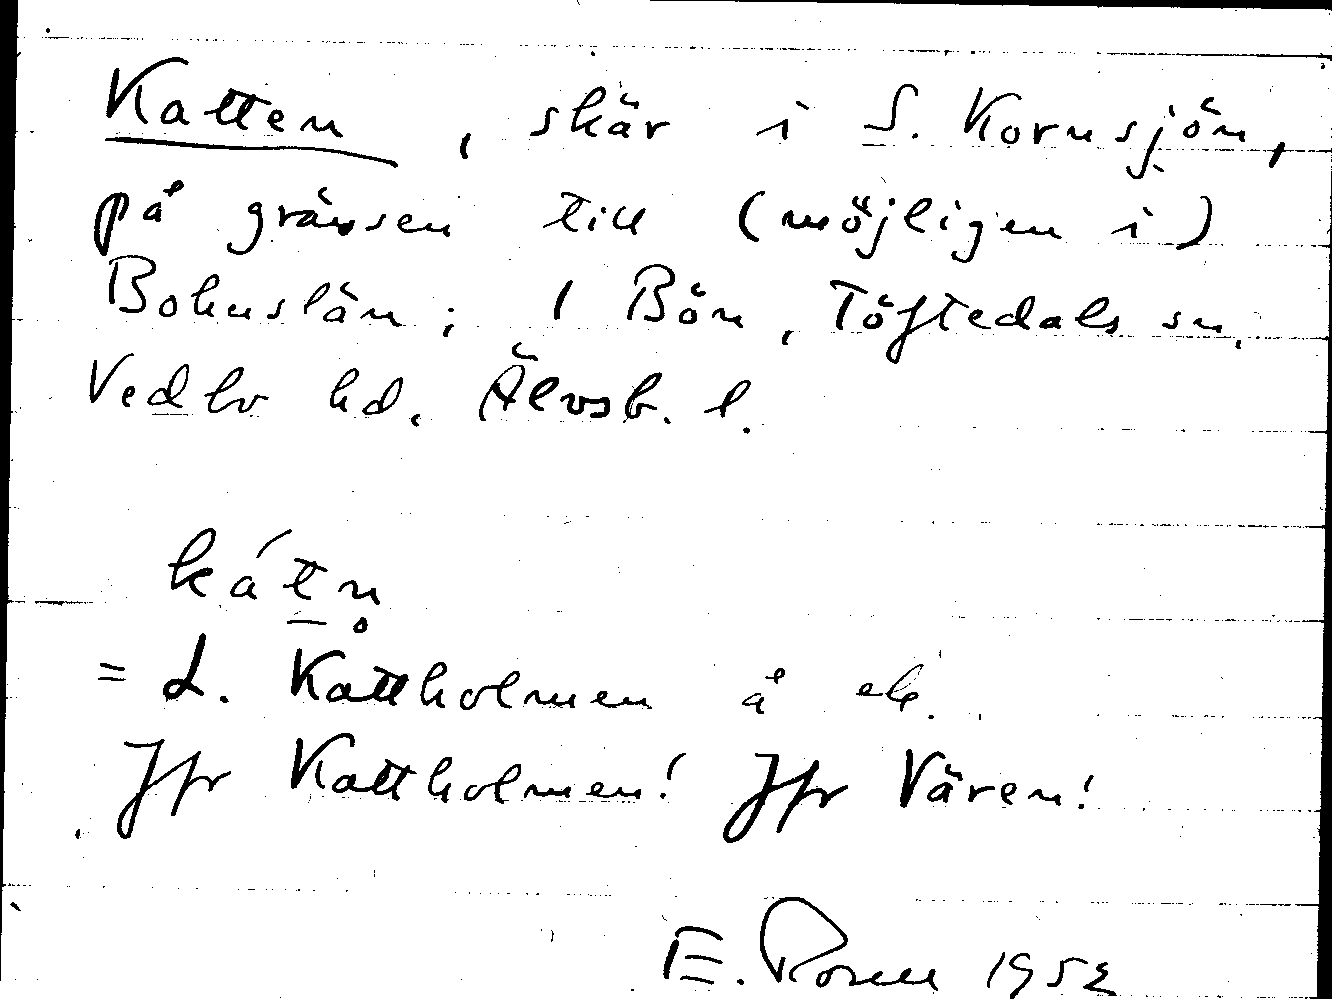 Katten, skär i S. Kornsjön,
på gränsen till (möjligen i)
Bohuslän; 1 Bön, Töftedals sn,
Vedbo hd. Älvsb. l.
kátn̥
= L. Kattholmen å ek.
Jfr Kattholmen! Jfr Vären!
E. Rosell 1952